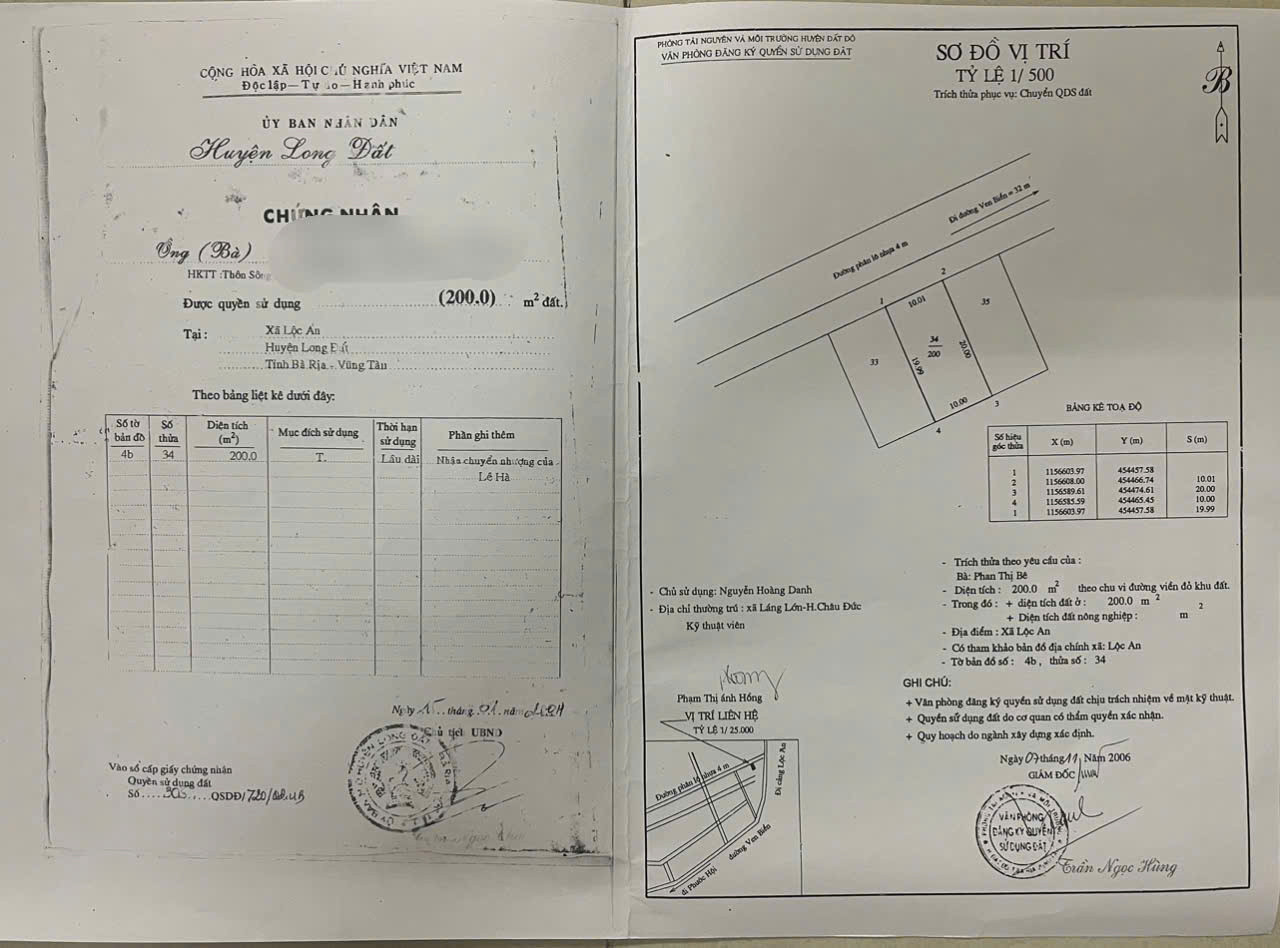 CỘNG HÒA XÃ HỘI CHỦ NGHĨA VIỆT NAM
Độc lập — Tự do — Hạnh phúc
ỦY BAN NHÂN DÂN
Huyện Long Đất
CHỨNG NHẬN
Ông (Bà)
HKTT :Thôn
Được quyền sử dụng (200.0) m² đất.
Tại : Xã Lộc An
Huyện Long Đất
Tỉnh Bà Rịa - Vũng Tàu
Theo bảng liệt kê dưới đây:
Số tờ bản đồ Số thửa Diện tích (m²) Mục đích sử dụng Thời hạn sử dụng Phần ghi thêm
4b 34 200.0 T. Lâu dài Nhận chuyển nhượng của
Lê Hà
Ngày 15 tháng 01 năm
Chủ tịch UBND
Vào sổ cấp giấy chứng nhận
Quyền sử dụng đất
Số QSDĐ/
PHÒNG TÀI NGUYÊN VÀ MÔI TRƯỜNG HUYỆN ĐẤT ĐỎ
VĂN PHÒNG ĐĂNG KÝ QUYỀN SỬ DỤNG ĐẤT
SƠ ĐỒ VỊ TRÍ
TỶ LỆ 1/ 500
Trích thửa phục vụ: Chuyển QDS đất
B
Đi đường Ven Biển = 32 m
Đường phân lô nhựa 4 m
1
2
10.01
33
34
200
35
19.99
20.00
10.00
3
4
BẢNG KÊ TOẠ ĐỘ
Số hiệu góc thửa X (m) Y (m) S (m)
1 1156603.97 454457.58
10.01
2 1156608.00 454466.74
20.00
3 1156589.61 454474.61
10.00
4 1156585.59 454465.45
19.99
1 1156603.97 454457.58
- Trích thửa theo yêu cầu của :
Bà: Phan Thị Bê
- Diện tích : 200.0 m² theo chu vi đường viền đỏ khu đất.
- Trong đó : + diện tích đất ở : 200.0 m²
+ Diện tích đất nông nghiệp : m²
- Địa điểm : Xã Lộc An
- Có tham khảo bản đồ địa chính xã: Lộc An
- Tờ bản đồ số : 4b , thửa số : 34
- Chủ sử dụng: Nguyễn Hoàng Danh
- Địa chỉ thường trú : xã Láng Lớn-H.Châu Đức
Kỹ thuật viên
Phạm Thị ánh Hồng
VỊ TRÍ LIÊN HỆ
TỶ LỆ 1/ 25.000
Đường phân lô nhựa 4 m
Đi cảng Lộc An
đường Ven Biển
đi Phước Hội
GHI CHÚ:
+ Văn phòng đăng ký quyền sử dụng đất chịu trách nhiệm về mặt kỹ thuật.
+ Quyền sử dụng đất do cơ quan có thẩm quyền xác nhận.
+ Quy hoạch do ngành xây dựng xác định.
Ngày 07 tháng 11 Năm 2006
GIÁM ĐỐC
VĂN PHÒNG
ĐĂNG KÝ QUYỀN
SỬ DỤNG ĐẤT
Trần Ngọc Hùng